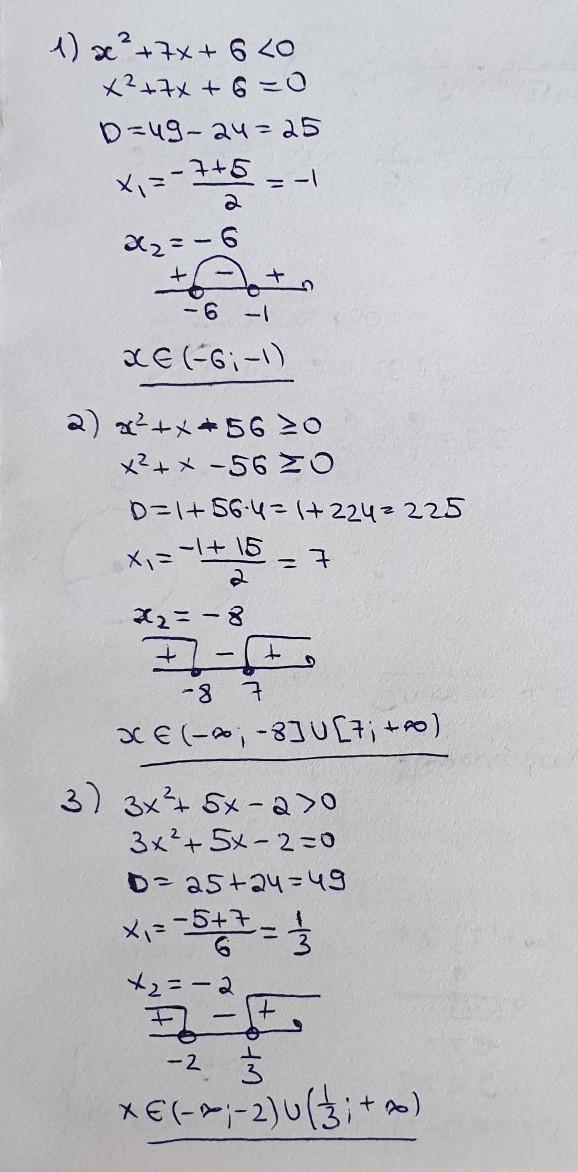 1) x² + 7x + 6 < 0
x² + 7x + 6 = 0
D = 49 - 24 = 25
x₁ = (-7+5)/2 = -1
x₂ = -6
+ - +
-6 -1
x ∈ (-6; -1)
2) x² + x - 56 ≥ 0
x² + x - 56 ≥ 0
D = 1 + 56·4 = 1 + 224 = 225
x₁ = (-1 + 15)/2 = 7
x₂ = -8
+ - +
-8 7
x ∈ (-∞; -8] ∪ [7; +∞)
3) 3x² + 5x - 2 > 0
3x² + 5x - 2 = 0
D = 25 + 24 = 49
x₁ = (-5+7)/6 = 1/3
x₂ = -2
+ - +
-2 1/3
x ∈ (-∞; -2) ∪ (1/3; +∞)